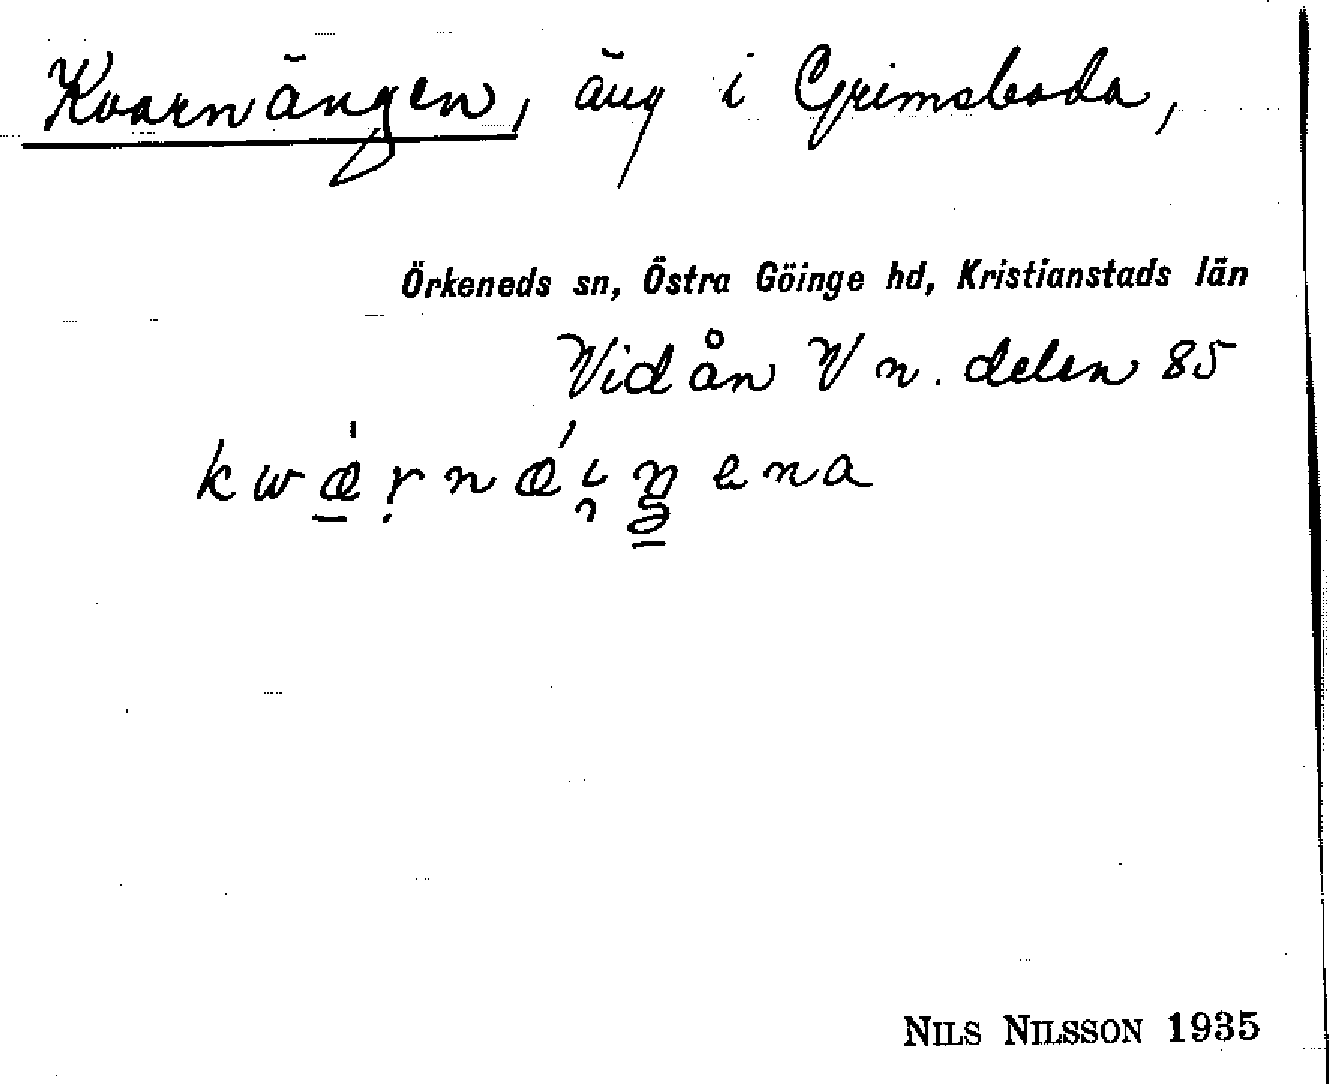 Kvarnängen, äng i Grimsboda,
Örkeneds sn, Östra Göinge hd, Kristianstads län
Vid ån V n. delen 85
kwæ̠̍ṛnǽi̯ŋena
NILS NILSSON 1935